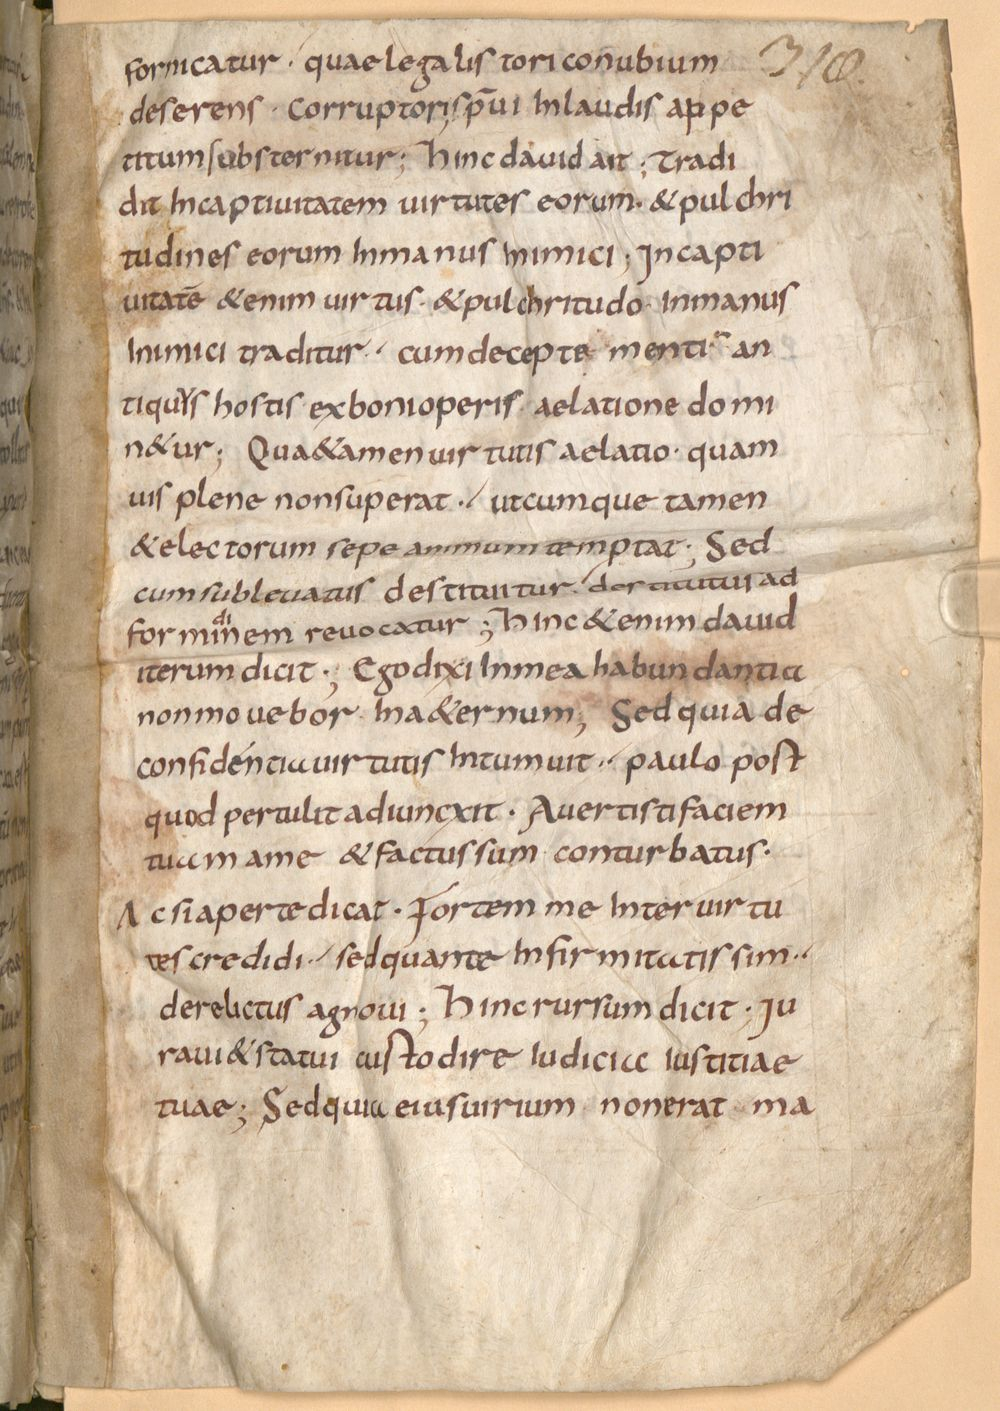 fornicatur · quae legalis tori conubium
310
deserens · Corruptoris p̄ui In laudis appe
titum substernitur ; hinc dauid ait ; Tradi
dit In captiuitatem uirtutes eorum · & pulchri
tudines eorum In manus Inimici ; In capti
uitatē &enim uirtus · & pulchritudo · In manus
Inimici traditur · cum decepte menti an
tiquus hostis ex boni operis aelatione domi
n&ur ; Qua& amen uirtutis aelatio · quam
uis plene non superat · utcumque tamen
& electorum sepe animum temptat ; Sed
cum subleuatus destituitur · destitutus ad
formidinem reuocatur ; hinc &enim dauid
iterum dicit ; Ego dixi In mea habundantia
non mouebor In a&ernum ; Sed quia de
confidentia uirtutis Intumuit · paulo post
quod pertulit adiuncxit · Auertisti faciem
tuam a me & factus sum conturbatus ·
Ac si aperte dicat · Fortem me Inter uirtu
tes credidi · sed quante Infirmitatis sim ·
derelictus agnoui ; hinc rursum dicit · Iu
raui & statui custodire Iudicia Iustitiae
tuae ; Sed quia eius uirium non erat ma